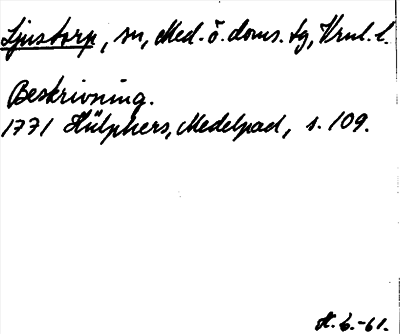 Ljustorp, sn, Med. ö. doms. tg, Vrnl. l.
Beskrivning.
1771 Hülphers, Medelpad, s. 109.
H. L.-61.